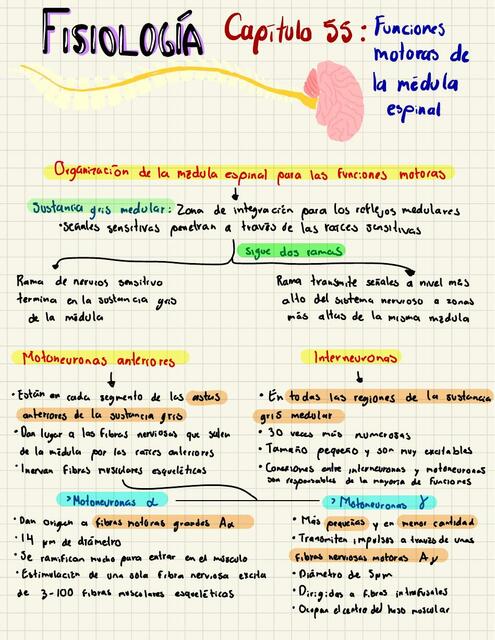 FISIOLOGÍA Capítulo 55: Funciones
motoras de
la médula
espinal
Organización de la médula espinal para las funciones motoras
Sustancia gris medular: Zona de integración para los reflejos medulares
• Señales sensitivas penetran a través de las raíces sensitivas
sigue dos ramas
Rama de nervios sensitivo
termina en la sustancia gris
de la médula
Rama transmite señales a nivel más
alto del sistema nervioso o zonas
más altas de la misma médula
Motoneuronas anteriores
• Están en cada segmento de las astas
anteriores de la sustancia gris
• Dan lugar a las fibras nerviosas que salen
de la médula por las raíces anteriores
• Inervan fibras musculares esqueléticas
Interneuronas
• En todas las regiones de la sustancia
gris medular
• 30 veces más numerosas
• Tamaño pequeño y son muy excitables
• Conexiones entre interneuronas y motoneuronas
son responsables de la mayoría de funciones
> Motoneuronas α
• Dan origen a fibras motoras grandes Aα
• 14 μm de diámetro
• Se ramifican mucho para entrar en el músculo
• Estimulación de una sola fibra nerviosa excita
de 3-100 fibras musculares esqueléticas
> Motoneuronas γ
• Más pequeñas y en menor cantidad
• Transmiten impulsos a través de unas
fibras nerviosas motoras Aγ
• Diámetro de 5μm
• Dirigidas a fibras intrafusales
• Ocupan el centro del huso muscular